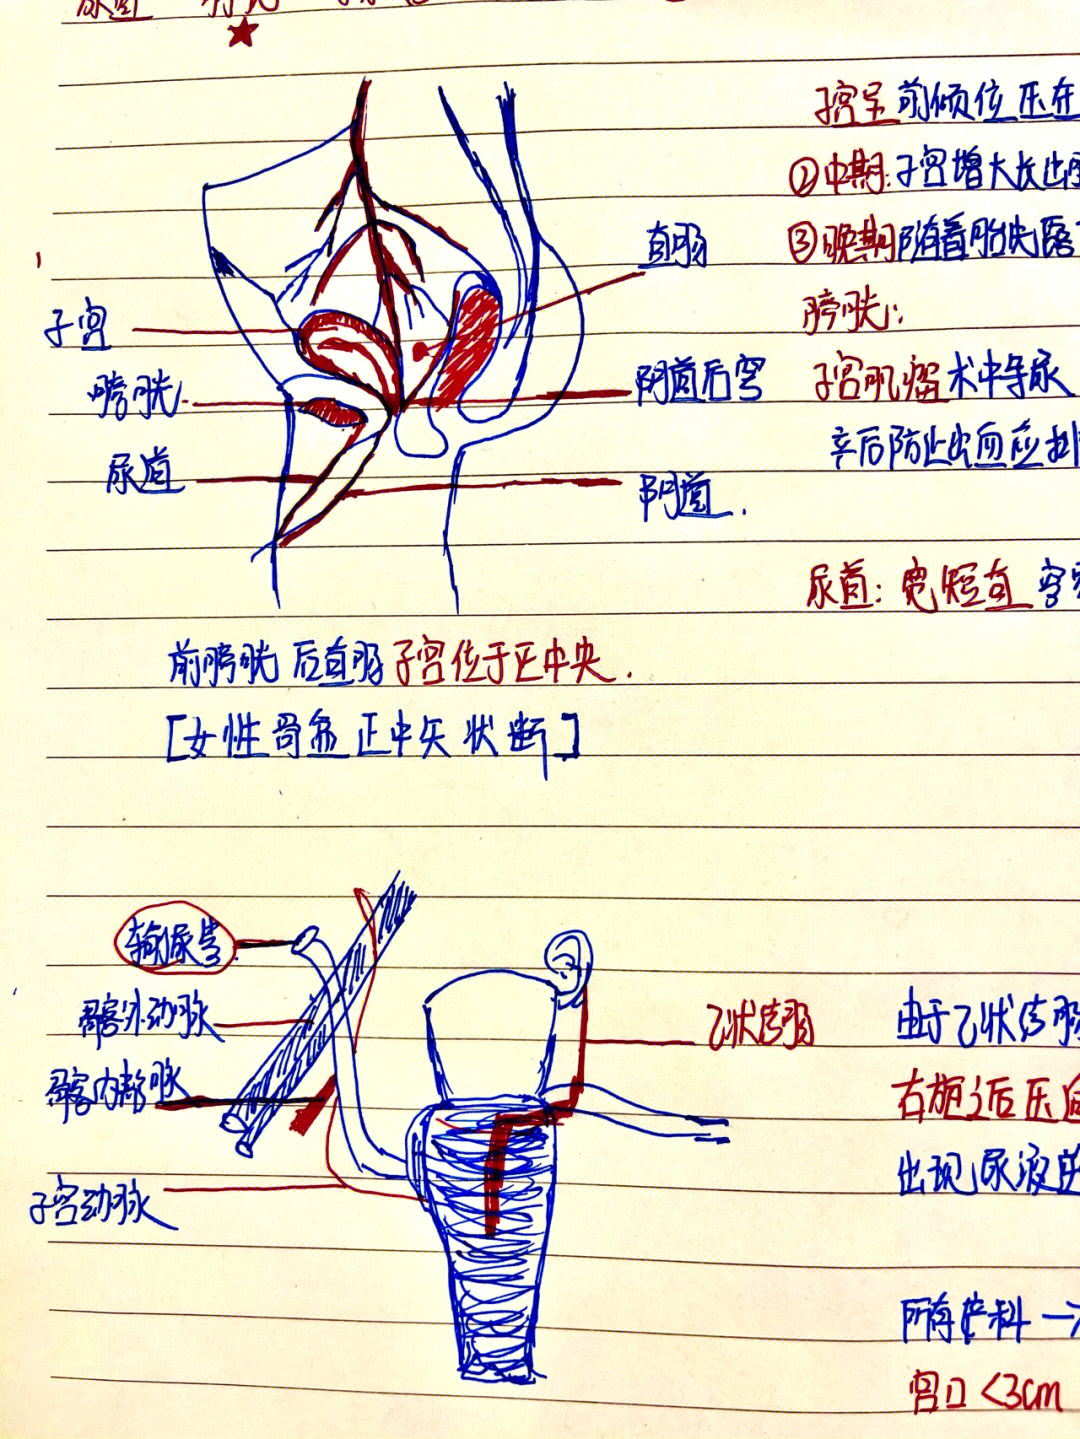 尿道
子宫呈前倾位压在
②中期:子宫增大长出
③晚期随着胎先露
膀胱:
子宫肌瘤术中导尿
卒后防止出血应排
尿道:宽短直
直肠
子宫
膀胱.
阴道后穹
尿道
阴道.
前膀胱 后直肠 子宫位于正中央.
[女性骨盆正中矢状断]
输尿管
髂外动脉
髂内静脉
子宫动脉
乙状结肠
由于乙状结肠
右旋之后压迫
出现尿液的
所有产科一
宫口<3cm